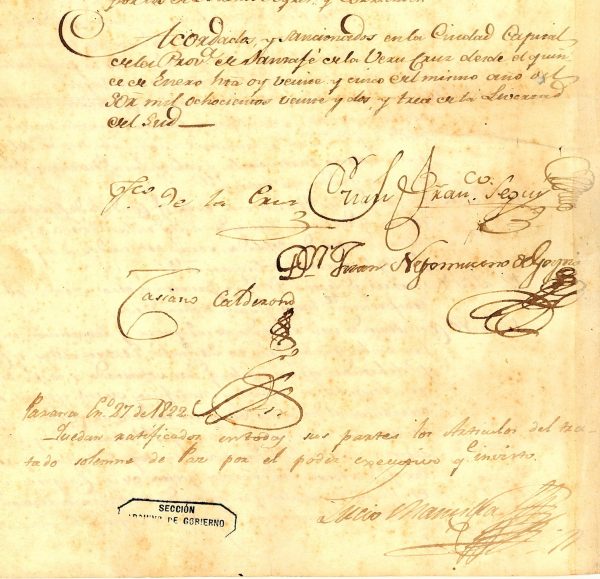 Acordados y sancionados en la Ciudad Capital
de la Prov.ª de Santa fé de la Vera Cruz desde el quin
ce de Enero hta oy veinte y cinco del mismo año del
Sor mil ochocientos veinte y dos y tres de la Livertad
del Sud
Fco. de la Cruz Juan Franco. Segui
Juan Nepomuceno de Goyri
Casiano Calderon
Parana En.º 27 de 1822
Quedan ratificados en todas sus partes los Articulos del tra-
tado solemne de Paz por el poder executivo q.e invisto.
Lucio Mansilla
SECCIÓN
DE GOBIERNO